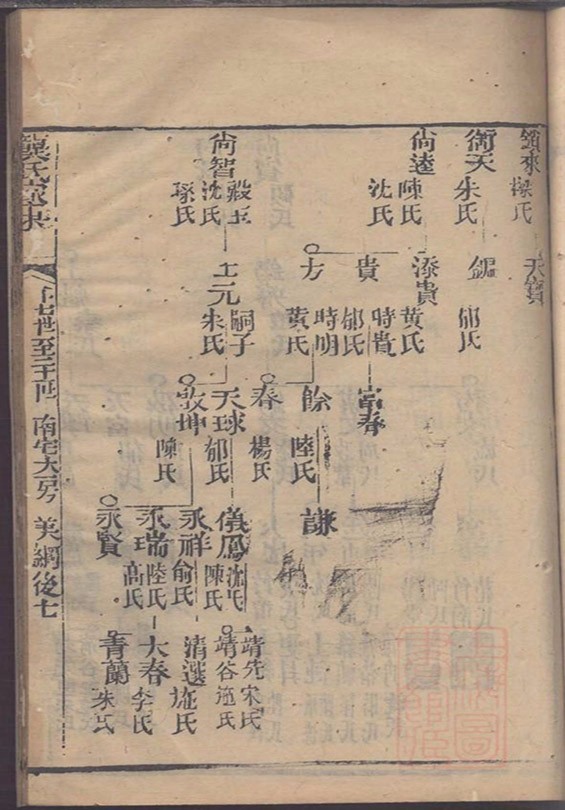 梁氏
天寶
衡天
朱氏
郁氏
尙逵
陳氏
沈氏
添貴
黄氏
時貴
貴
郁氏
富春
方
時明
黄氏
餘
陸氏
謙
春
楊氏
尙智
殿玉
沈氏
琢氏
士元
嗣子
朱氏
天球
郁氏
儀鳳
沈氏
陳氏
靖先
宋氏
靖谷
施氏
敬坤
陳氏
永祥
俞氏
清選
施氏
永瑞
陸氏
高氏
大春
李氏
永賢
青蘭
朱氏
龔氏
十七世至二十世
南宅大房
美綱後七